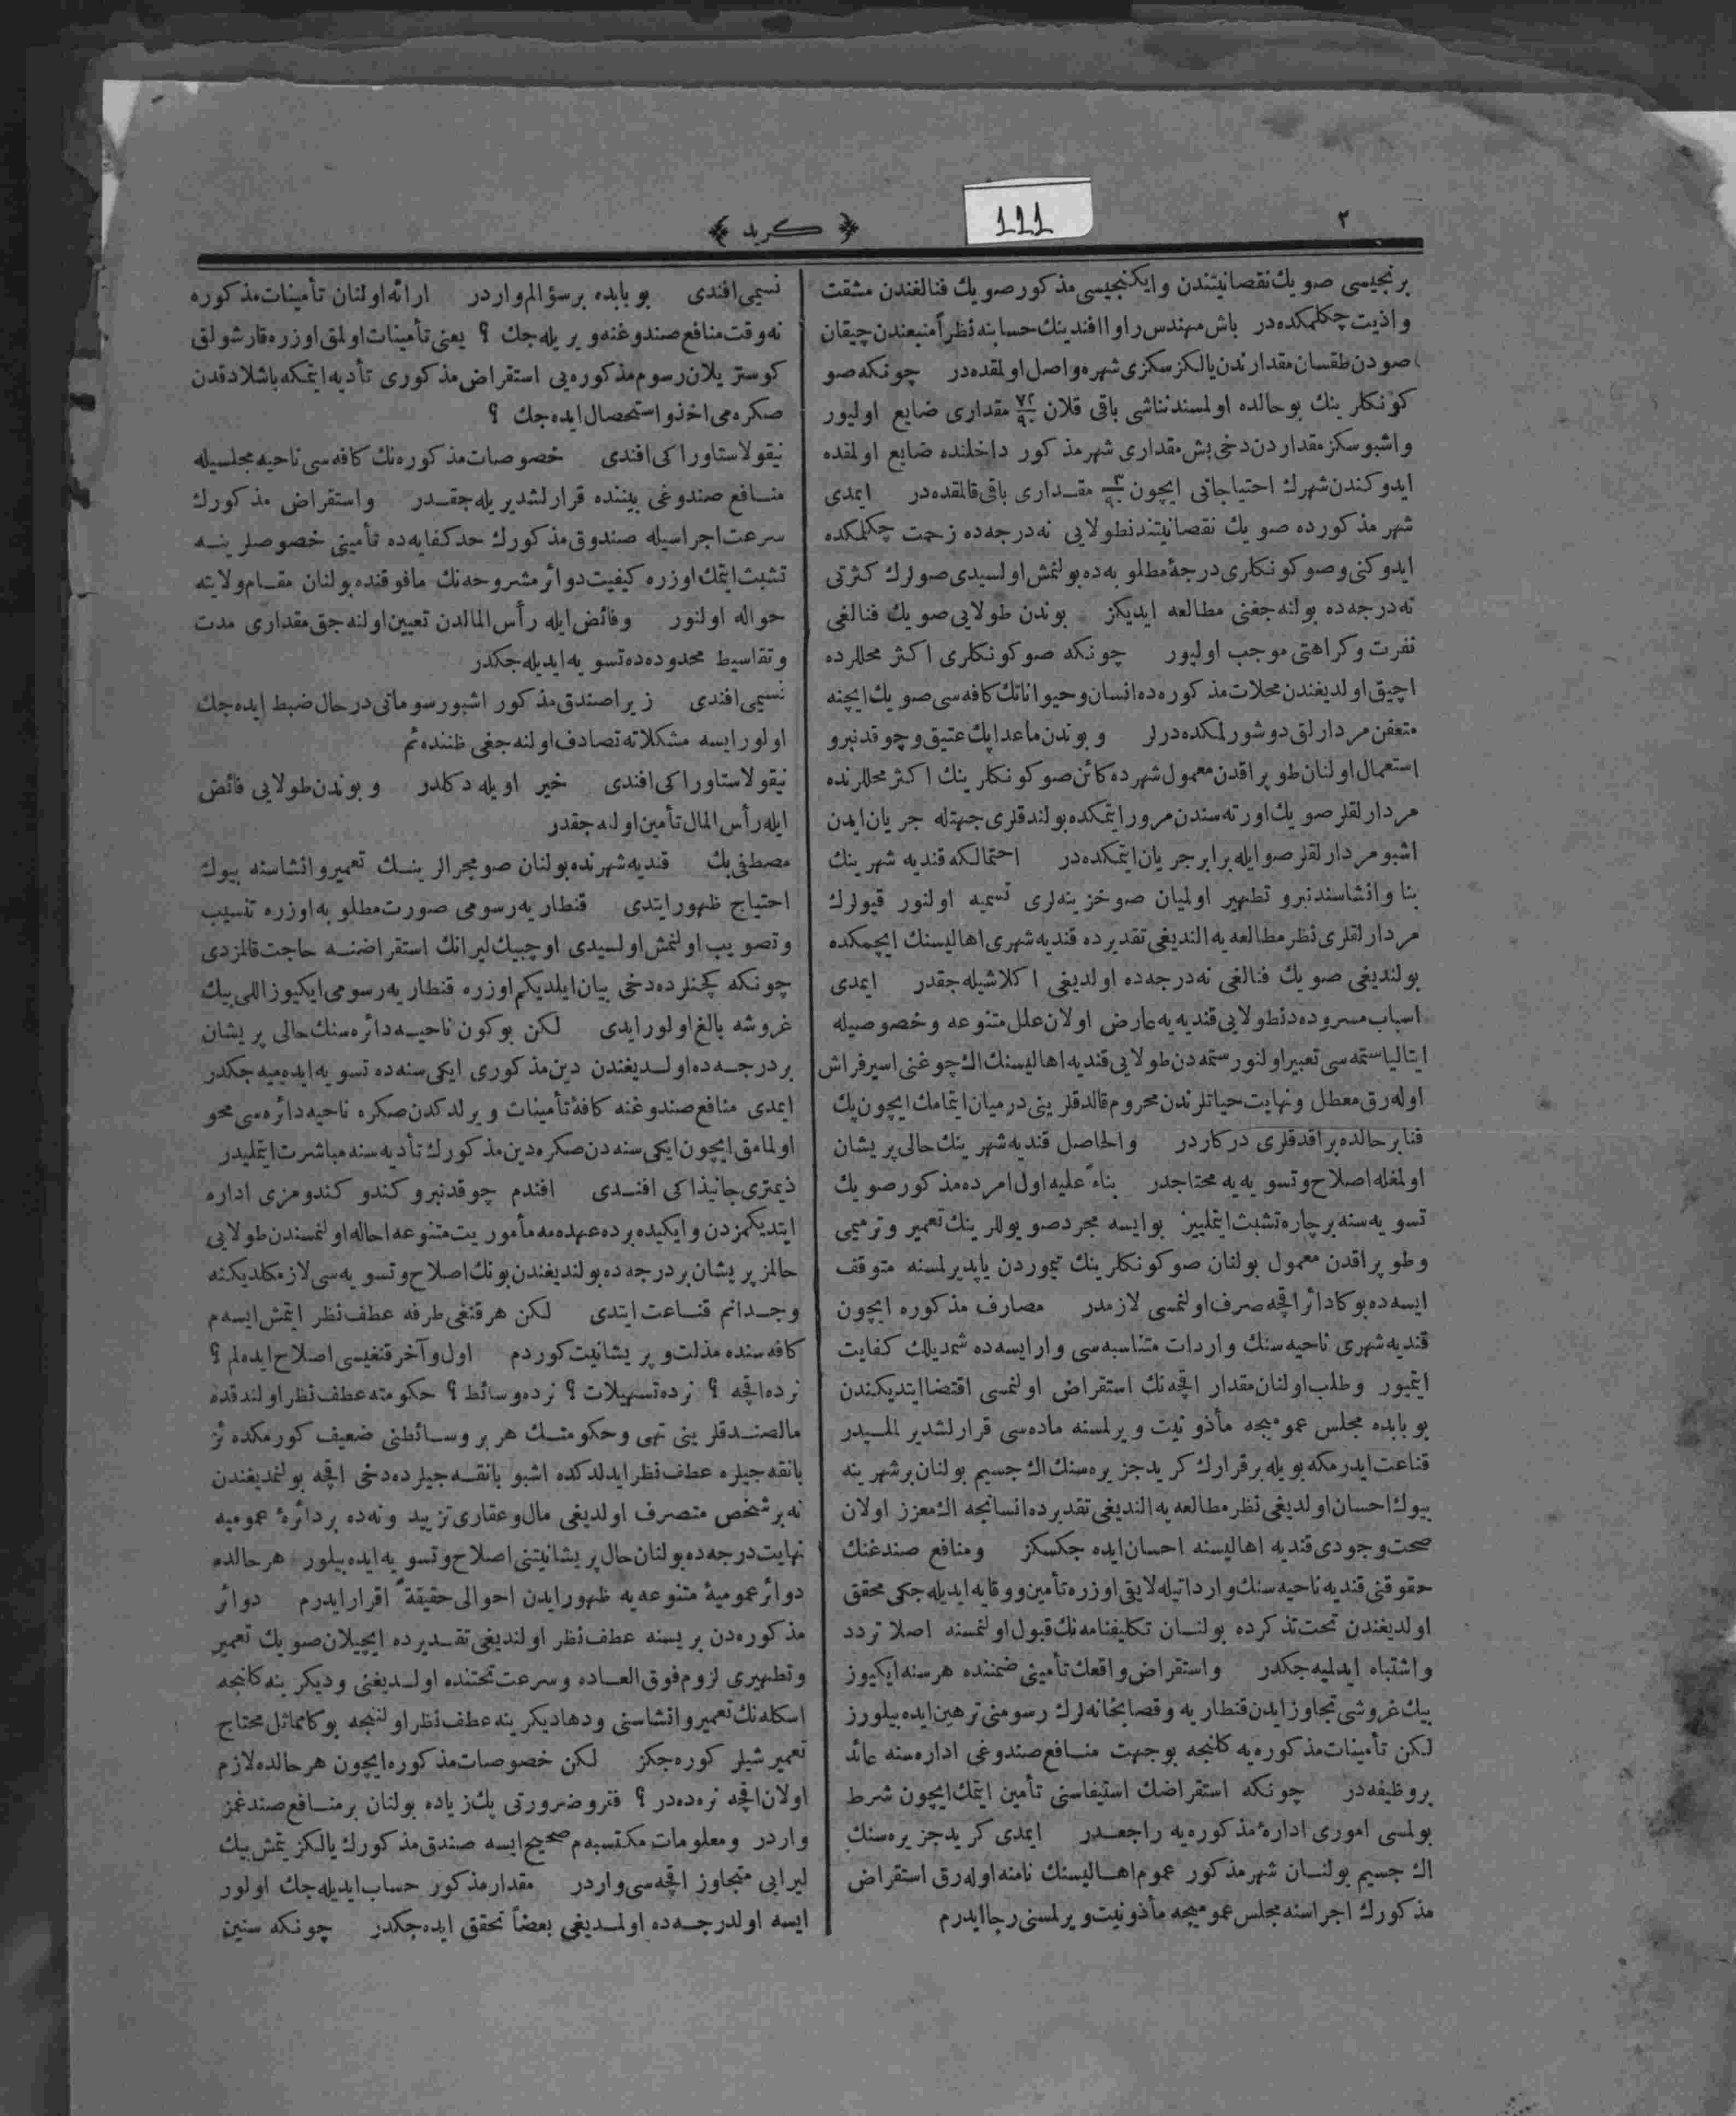 ٢
111
﴿ كريد ﴾
برنجيسى صويك نقصانيتندن وايكنجيسى مذكور صويك فنالغندن مشقت
واذيت چكلمكده در باش مهندس راوا افندينك حسابنه نظراً منبعندن چيقان
صودن طقسان مقدارندن يالكز سكزى شهره واصل اولمقده در چونكه صو
كونكلرينك بوحالده اولمسندنناشى باقى قلان ٧٢/٩٠ مقدارى ضايع اوليور
واشبو سكز مقداردن دخى بش مقدارى شهر مذكور داخلنده ضايع اولمقده
ايدوكندن شهرك احتياجاتى ايچون ٣/٩٠ مقدارى باقى قالمقده در ايمدى
شهر مذكورده صويك نقصانيتندنطولايى نه درجه ده زحمت چكلمكده
ايدوكنى وصو كونكلرى درجهٔ مطلوبه ده بولنمش اولسيدى صولرك كثرتى
نه درجه ده بولنه جغنى مطالعه ايديكز بوندن طولايى صويك فنالغى
نفرت وكراهتى موجب اوليور چونكه صو كونكلرى اكثر محللرده
اچيق اولديغندن محلات مذكوره ده انسان وحيواناتك كافه سى صويك ايچنه
متعفن مردارلق دوشورلمكده درلر وبوندن ماعدا پك عتيق وچوقدنبرو
استعمال اولنان طوپراقدن معمول شهرده كائن صو كونكلرينك اكثر محللرنده
مردارلقلر صويك اورته سندن مرور ايتمكده بولندقلرى جهتله جريان ايدن
اشبو مردارلقلر صو ايله برابر جريان ايتمكده در احتمالكه قنديه شهرينك
بنا وانشاسندنبرو تطهير اولميان صو خزينه لرى تسميه اولنور قيولرك
مردارلقلرى نظر مطالعه يه النديغى تقديرده قنديه شهرى اهاليسنك ايچمكده
بولنديغى صويك فنالغى نه درجه ده اولديغى اكلاشيله جقدر ايمدى
اسباب مسروده دنطولايى قنديه يه عارض اولان علل متنوعه وخصوصيله
ايتاليا ستمه سى تعبير اولنور ستمه دن طولايى قنديه اهاليسنك اك چوغنى اسير فراش
اوله رق معطل ونهايت حياتلرندن محروم قالدقلرينى درميان ايتمامك ايچون پك
فنا برحالده براقدقلرى دركاردر والحاصل قنديه شهرينك حالى پريشان
اولمغله اصلاح وتسويه يه محتاجدر بناءً عليه اول امرده مذكور صويك
تسويه سنه برچاره تشبث ايتمليز بوايسه مجرد صو يوللرينك تعمير وترميمى
وطوپراقدن معمول بولنان صو كونكلرينك تيموردن ياپديرلمسنه متوقف
ايسه ده بوكا دائر اقچه صرف اولنمسى لازمدر مصارف مذكوره ايچون
قنديه شهرى ناحيه سنك واردات متناسبه سى وارايسه ده شمديلك كفايت
ايتميور وطلب اولنان مقدار اقچه نك استقراض اولنمسى اقتضا ايتديكندن
بوبابده مجلس عموميجه مأذونيت ويرلمسنه ماده سى قرارلشديرلمليدر
قناعت ايدرمكه بويله برقرارك كريد جزيره سنك اك جسيم بولنان برشهرينه
بيوك احسان اولديغى نظر مطالعه يه النديغى تقديرده انسانجه اك معزز اولان
صحت وجودى قنديه اهاليسنه احسان ايده جكسكز ومنافع صندغنك
حقوقنى قنديه ناحيه سنك وارداتيله لايقى اوزره تأمين ووقايه ايديله جكى محقق
اولديغندن تحت تذكرده بولنان تكليفنامه نك قبول اولنمسنه اصلا تردد
واشتباه ايدلميه جكدر واستقراض واقعك تأمينى ضمننده هرسنه ايكيوز
بيك غروشى تجاوز ايدن قنطاريه وقصابخانه لرك رسومنى ترهين ايده بيلورز
لكن تأمينات مذكوره يه كلنجه بوجهت منافع صندوغى اداره سنه عائد
بروظيفه در چونكه استقراضك استيفاسنى تأمين ايتمك ايچون شرط
بولمسى امورى ادارهٔ مذكوره يه راجعدر ايمدى كريد جزيره سنك
اك جسيم بولنان شهر مذكور عموم اهاليسنك نامنه اوله رق استقراض
مذكورك اجراسنه مجلس عموميجه مأذونيت ويرلمسنى رجا ايدرم
نسيمى افندى بوبابده برسؤالم واردر ارائه اولنان تأمينات مذكوره
نه وقت منافع صندوغنه ويريله جك ؟ يعنى تأمينات اولمق اوزره قارشولق
كوستريلان رسوم مذكوره يى استقراض مذكورى تأديه ايتمكه باشلادقدن
صكره مى اخذ واستحصال ايده جك ؟
نيقولا ستاوراكى افندى خصوصات مذكوره نك كافه سى ناحيه مجلسيله
منافع صندوغى بيننده قرارلشديريله جقدر واستقراض مذكورك
سرعت اجراسيله صندوق مذكورك حد كفايه ده تأمينى خصوصلرينه
تشبث ايتمك اوزره كيفيت دوائر مشروحه نك مافوقنده بولنان مقام ولايته
حواله اولنور وفائض ايله رأس المالدن تعيين اولنه جق مقدارى مدت
وتقاسيط محدوده ده تسويه ايديله جكدر
نسيمى افندى زيرا صندق مذكور اشبو رسوماتى درحال ضبط ايده جك
اولور ايسه مشكلاته تصادف اولنه جغى ظننده ئم
نيقولا ستاوراكى افندى خير اويله دكلدر وبوندن طولايى فائض
ايله رأس المال تأمين اولنه جقدر
مصطفى بك قنديه شهرنده بولنان صو مجرالرينك تعمير وانشاسنه بيوك
احتياج ظهور ايتدى قنطاريه رسومى صورت مطلوبه اوزره تنسيب
وتصويب اولنمش اولسيدى اوچبيك ليرانك استقراضنه حاجت قالمزدى
چونكه كچنلرده دخى بيان ايلديكم اوزره قنطاريه رسومى ايكيوز اللى بيك
غروشه بالغ اولورايدى لكن بوكون ناحيه دائره سنك حالى پريشان
بردرجه ده اولديغندن دين مذكورى ايكى سنه ده تسويه ايده ميه جكدر
ايمدى منافع صندوغنه كافهٔ تأمينات ويرلدكدن صكره ناحيه دائره سى محو
اولمامق ايچون ايكى سنه دن صكره دين مذكورك تأديه سنه مباشرت ايتمليدر
ذيمترى جانيذاكى افندى افندم چوقدنبرو كندو كندومزى اداره
ايتديكمزدن وايكيده برده عهده مه مأموريت متنوعه احاله اولنمسندن طولايى
حالمز پريشان بردرجه ده بولنديغندن بونك اصلاح وتسويه سى لازمكلديكنه
وجدانم قناعت ايتدى لكن هرقنغى طرفه عطف نظر ايتمش ايسه م
كافه سنده مذلت وپريشانيت كوردم اول وآخر قنغيسى اصلاح ايده لم ؟
نرده اقچه ؟ نرده تسهيلات ؟ نرده وسائط ؟ حكومته عطف نظر اولندقده
مالصندقلرينى تهى وحكومتك هر بر وسائطنى ضعيف كورمكده ئز
بانقه جيلره عطف نظر ايدلدكده اشبو بانقه جيلرده دخى اقچه بولنمديغندن
نه برشخص متصرف اولديغى مال وعقارى تزييد ونه ده بر دائرهٔ عموميه
نهايت درجه ده بولنان حال پريشانيتنى اصلاح وتسويه ايده بيلور هرحالده
دوائر عموميهٔ متنوعه يه ظهور ايدن احوالى حقيقةً اقرار ايدرم دوائر
مذكوره دن بريسنه عطف نظر اولنديغى تقديرده ايچيلان صويك تعمير
وتطهيرى لزوم فوق العاده وسرعت تحتنده اولديغنى وديكرينه كلنجه
اسكله نك تعمير وانشاسنى ودها ديكرينه عطف نظر اولنجه بوكا مماثل محتاج
تعمير شيلر كوره جكز لكن خصوصات مذكوره ايچون هرحالده لازم
اولان اقچه نره ده در ؟ فقر وضرورتى پك زياده بولنان برمنافع صندغمز
واردر ومعلومات مكتسبه م صحيح ايسه صندق مذكورك يالكز يتمش بيك
ليرايى متجاوز اقچه سى واردر مقدار مذكور حساب ايديله جك اولور
ايسه اولدرجه ده اولمديغى بعضاً تحقق ايده جكدر چونكه سنين